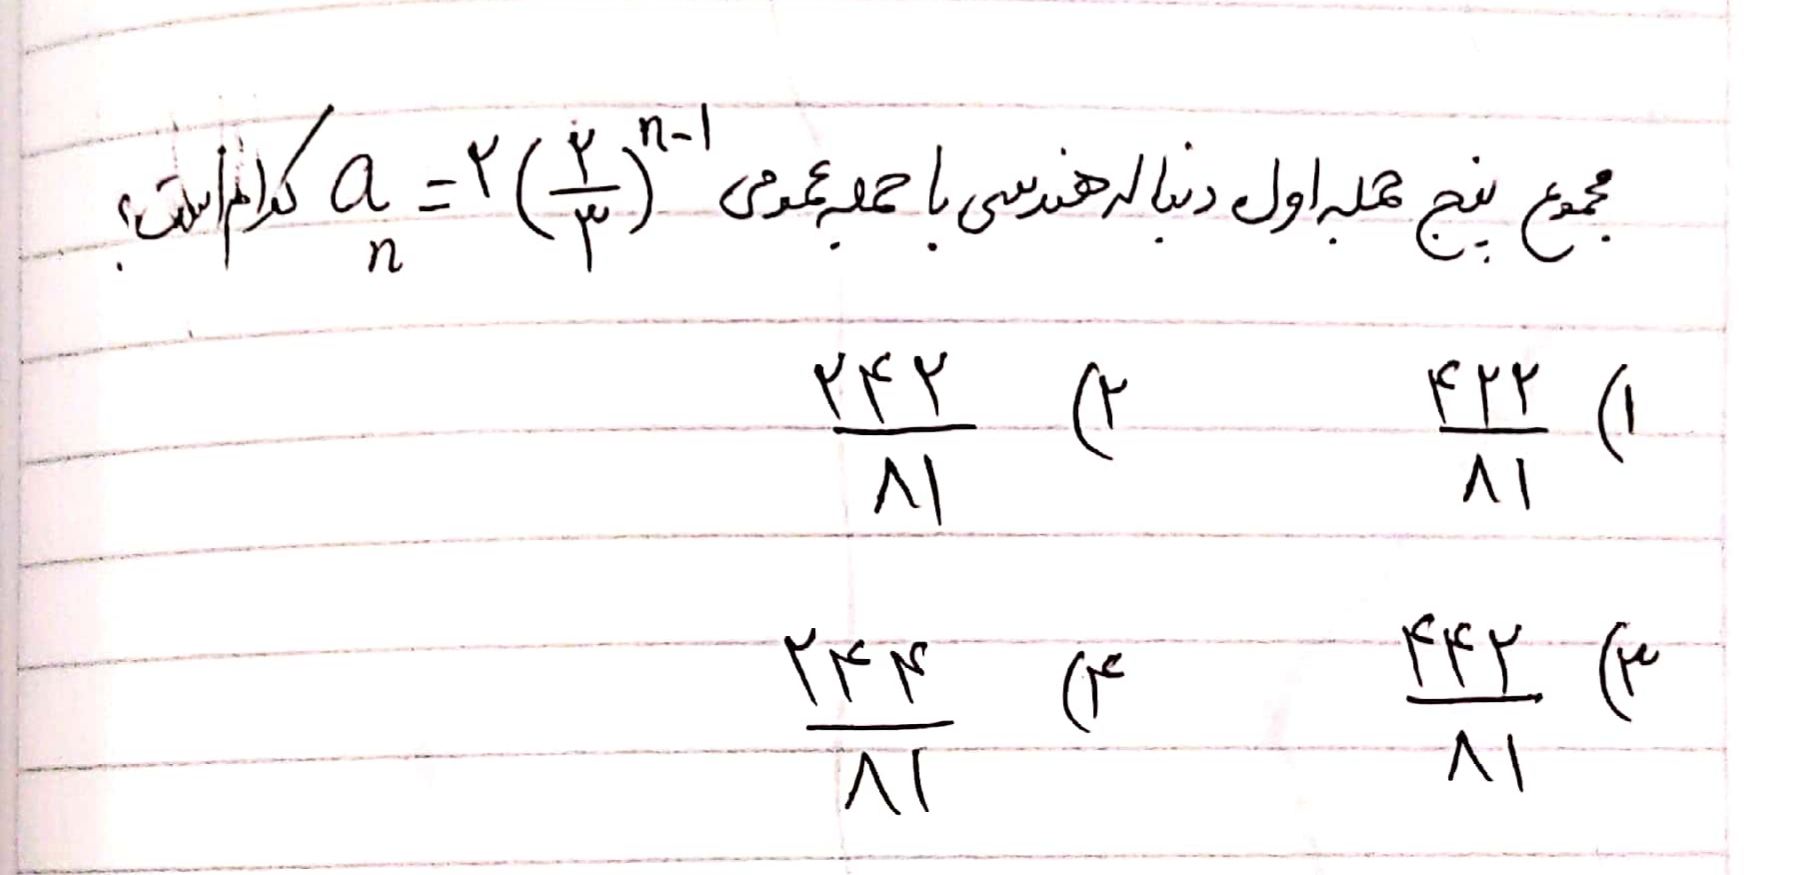 مجموع پنج جمله اول دنباله هندسی با جمله عمومی aₙ = ۲(۲/۳)ⁿ⁻¹ کدام است؟
۱) ۴۲۲/۸۱ ۲) ۲۴۲/۸۱
۳) ۴۴۲/۸۱ ۴) ۲۴۴/۸۱